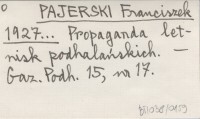 PAJERSKI Franciszek
1927... Propaganda let-
nisk podhalańskich. —
Gaz. Podh. 15, nr 17.